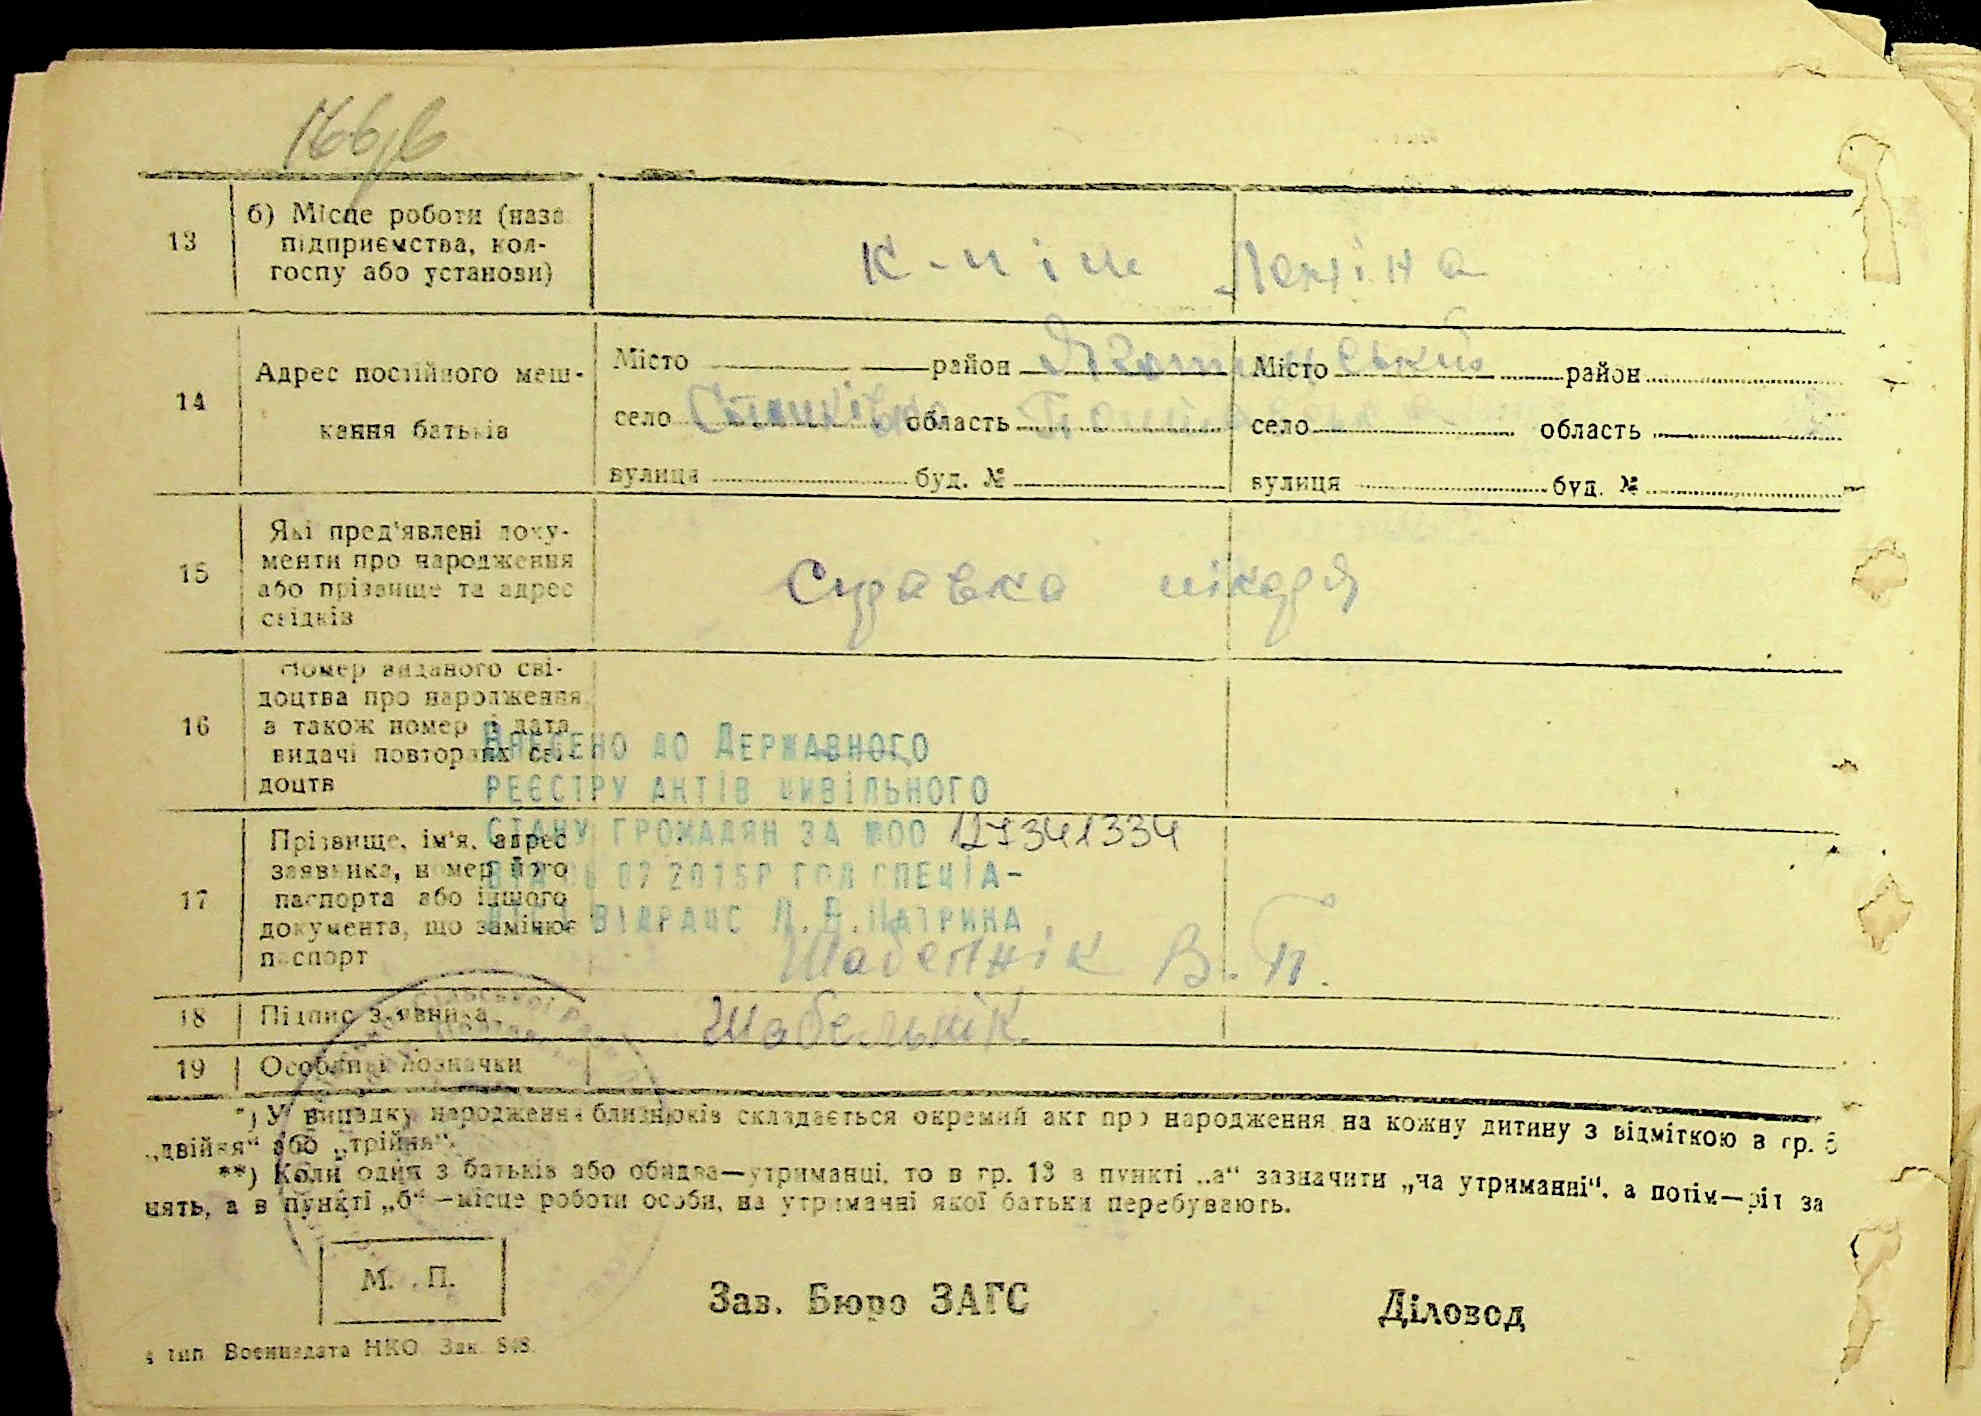 13
б) Місце роботи (назва
підприємства, кол-
госпу або установи)
Леніна
14
Адрес постійного меш-
кання батьків
Місто район Місто район
село область село область
вулиця буд. № вулиця буд. №
15
Які пред'явлені доку-
менти про народження
або прізвище та адрес
свідків
Справка лікаря
16
Номер виданого сві-
доцтва про народження
а також номер і дата
видачі повторних сві-
доцтв
Внесено до Державного
реєстру актів цивільного
стану громадян за №00 127341334
07 2015р гол спеціа-
ліст відрацс Л.В.
17
Прізвище, ім'я, адрес
заявника, номер його
паспорта або іншого
документа, що замінює
паспорт
В. П.
18 Підпис заявника
Шабельнік
19 Особливі позначки
*) У випадку народження близнюків складається окремий акт про народження на кожну дитину з відміткою в гр. 6
„двійня“ або „трійня“.
**) Коли один з батьків або обидва—утриманці, то в гр. 13 в пункті „а“ зазначити „на утриманні“, а потім—рід за
нять, а в пункті „б“—місце роботи особи, на утриманні якої батьки перебувають.
М. П.
Зав. Бюро ЗАГС Діловод
4 тип. Воениздата НКО. Зак. 848.